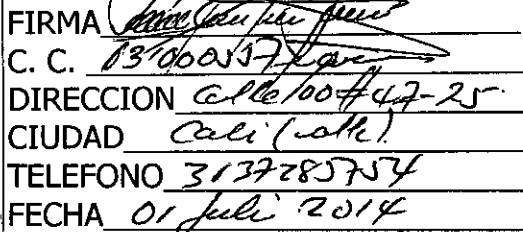 FIRMA
C. C.
DIRECCION calle 100 # 47-25
CIUDAD Cali (valle)
TELEFONO 3137285754
FECHA 01 Juli 2014